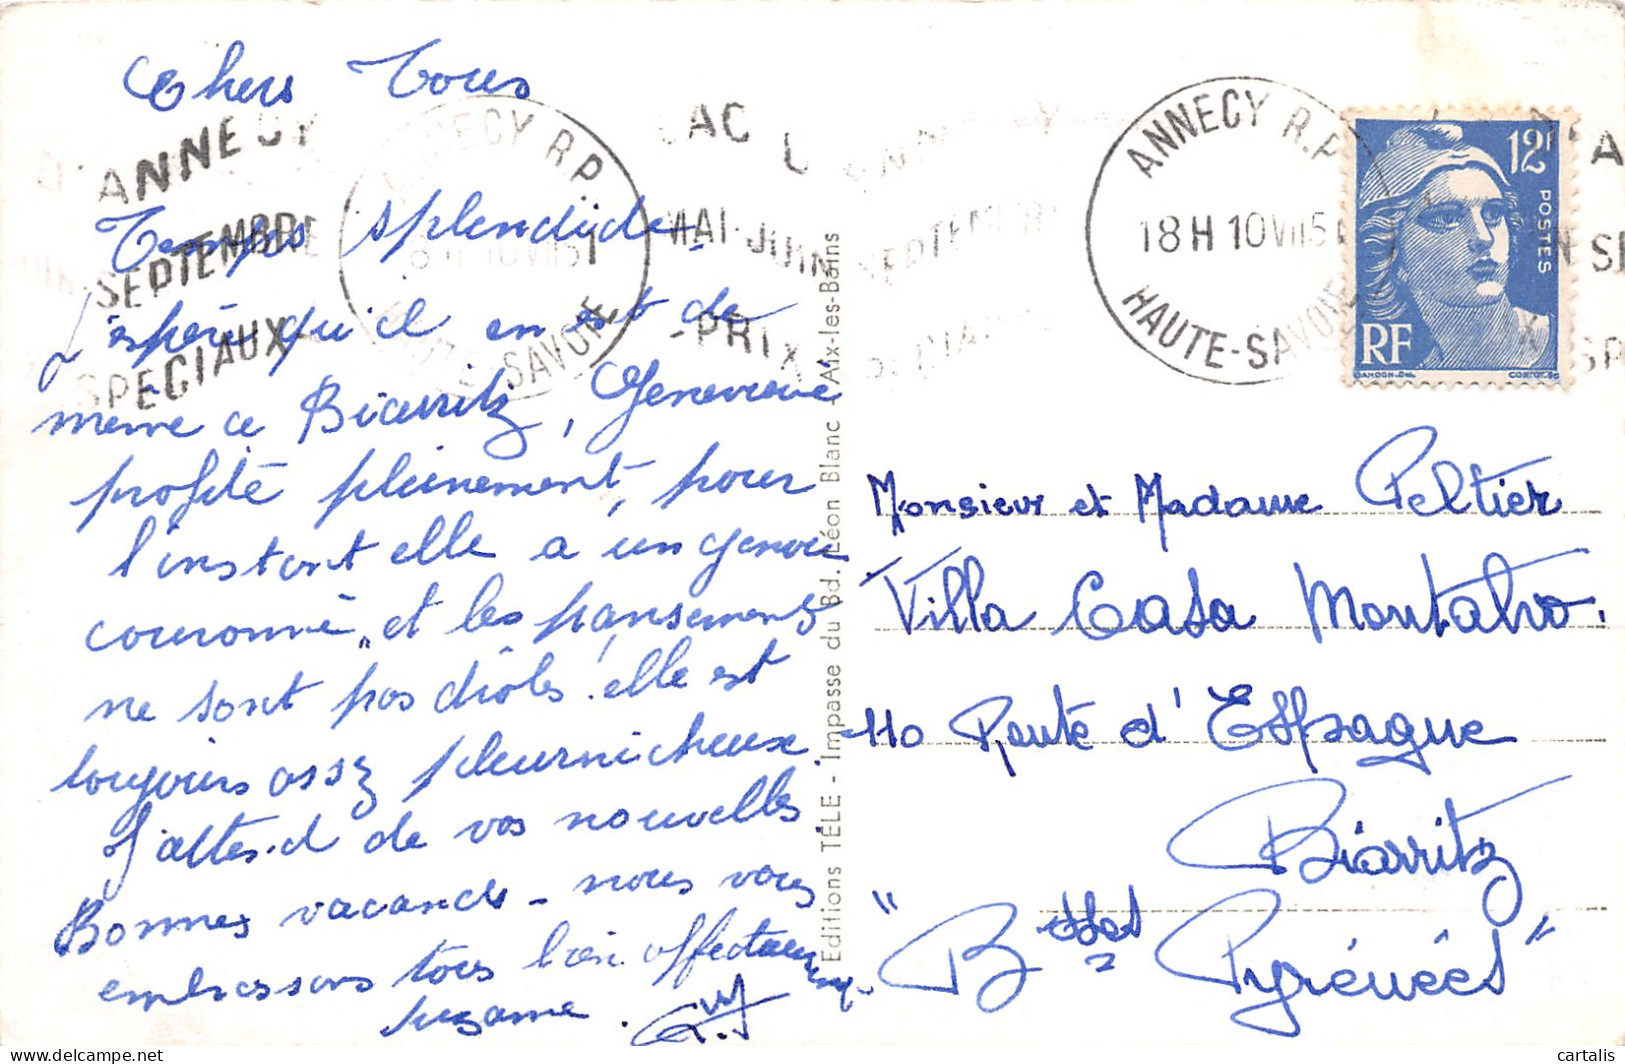 Chers Tous
Temps splendide
J'espère qu'il en est de
même à Biarritz, Geneviève
profite pleinement, pour
l'instant elle a un genou
couronné, et les pansements
ne sont pas drôles. elle est
toujours assez pleurnicheuse.
J'attend de vos nouvelles
Bonnes vacances - nous vous
embrassons tous bien affectueusement.
Suzanne
ANNECY
SEPTEMBRE
SPECIAUX
ANNECY R.P.
HAUTE-SAVOIE
LAC
MAI-JUIN SEPTEMBRE
-PRIX
Editions TÉLÉ - Impasse du Bd. Léon Blanc - Aix-les-Bains
ANNECY R.P.
18H 10 VII 51
HAUTE-SAVOIE
12F
POSTES
RF
GANDON-DEL.
CORTOT.SC
Monsieur et Madame Peltier
Villa Casa Montalvo.
110 Route d'Espagne
Biarritz
"Bsses Pyrénées"
cartalis
delcampe.net